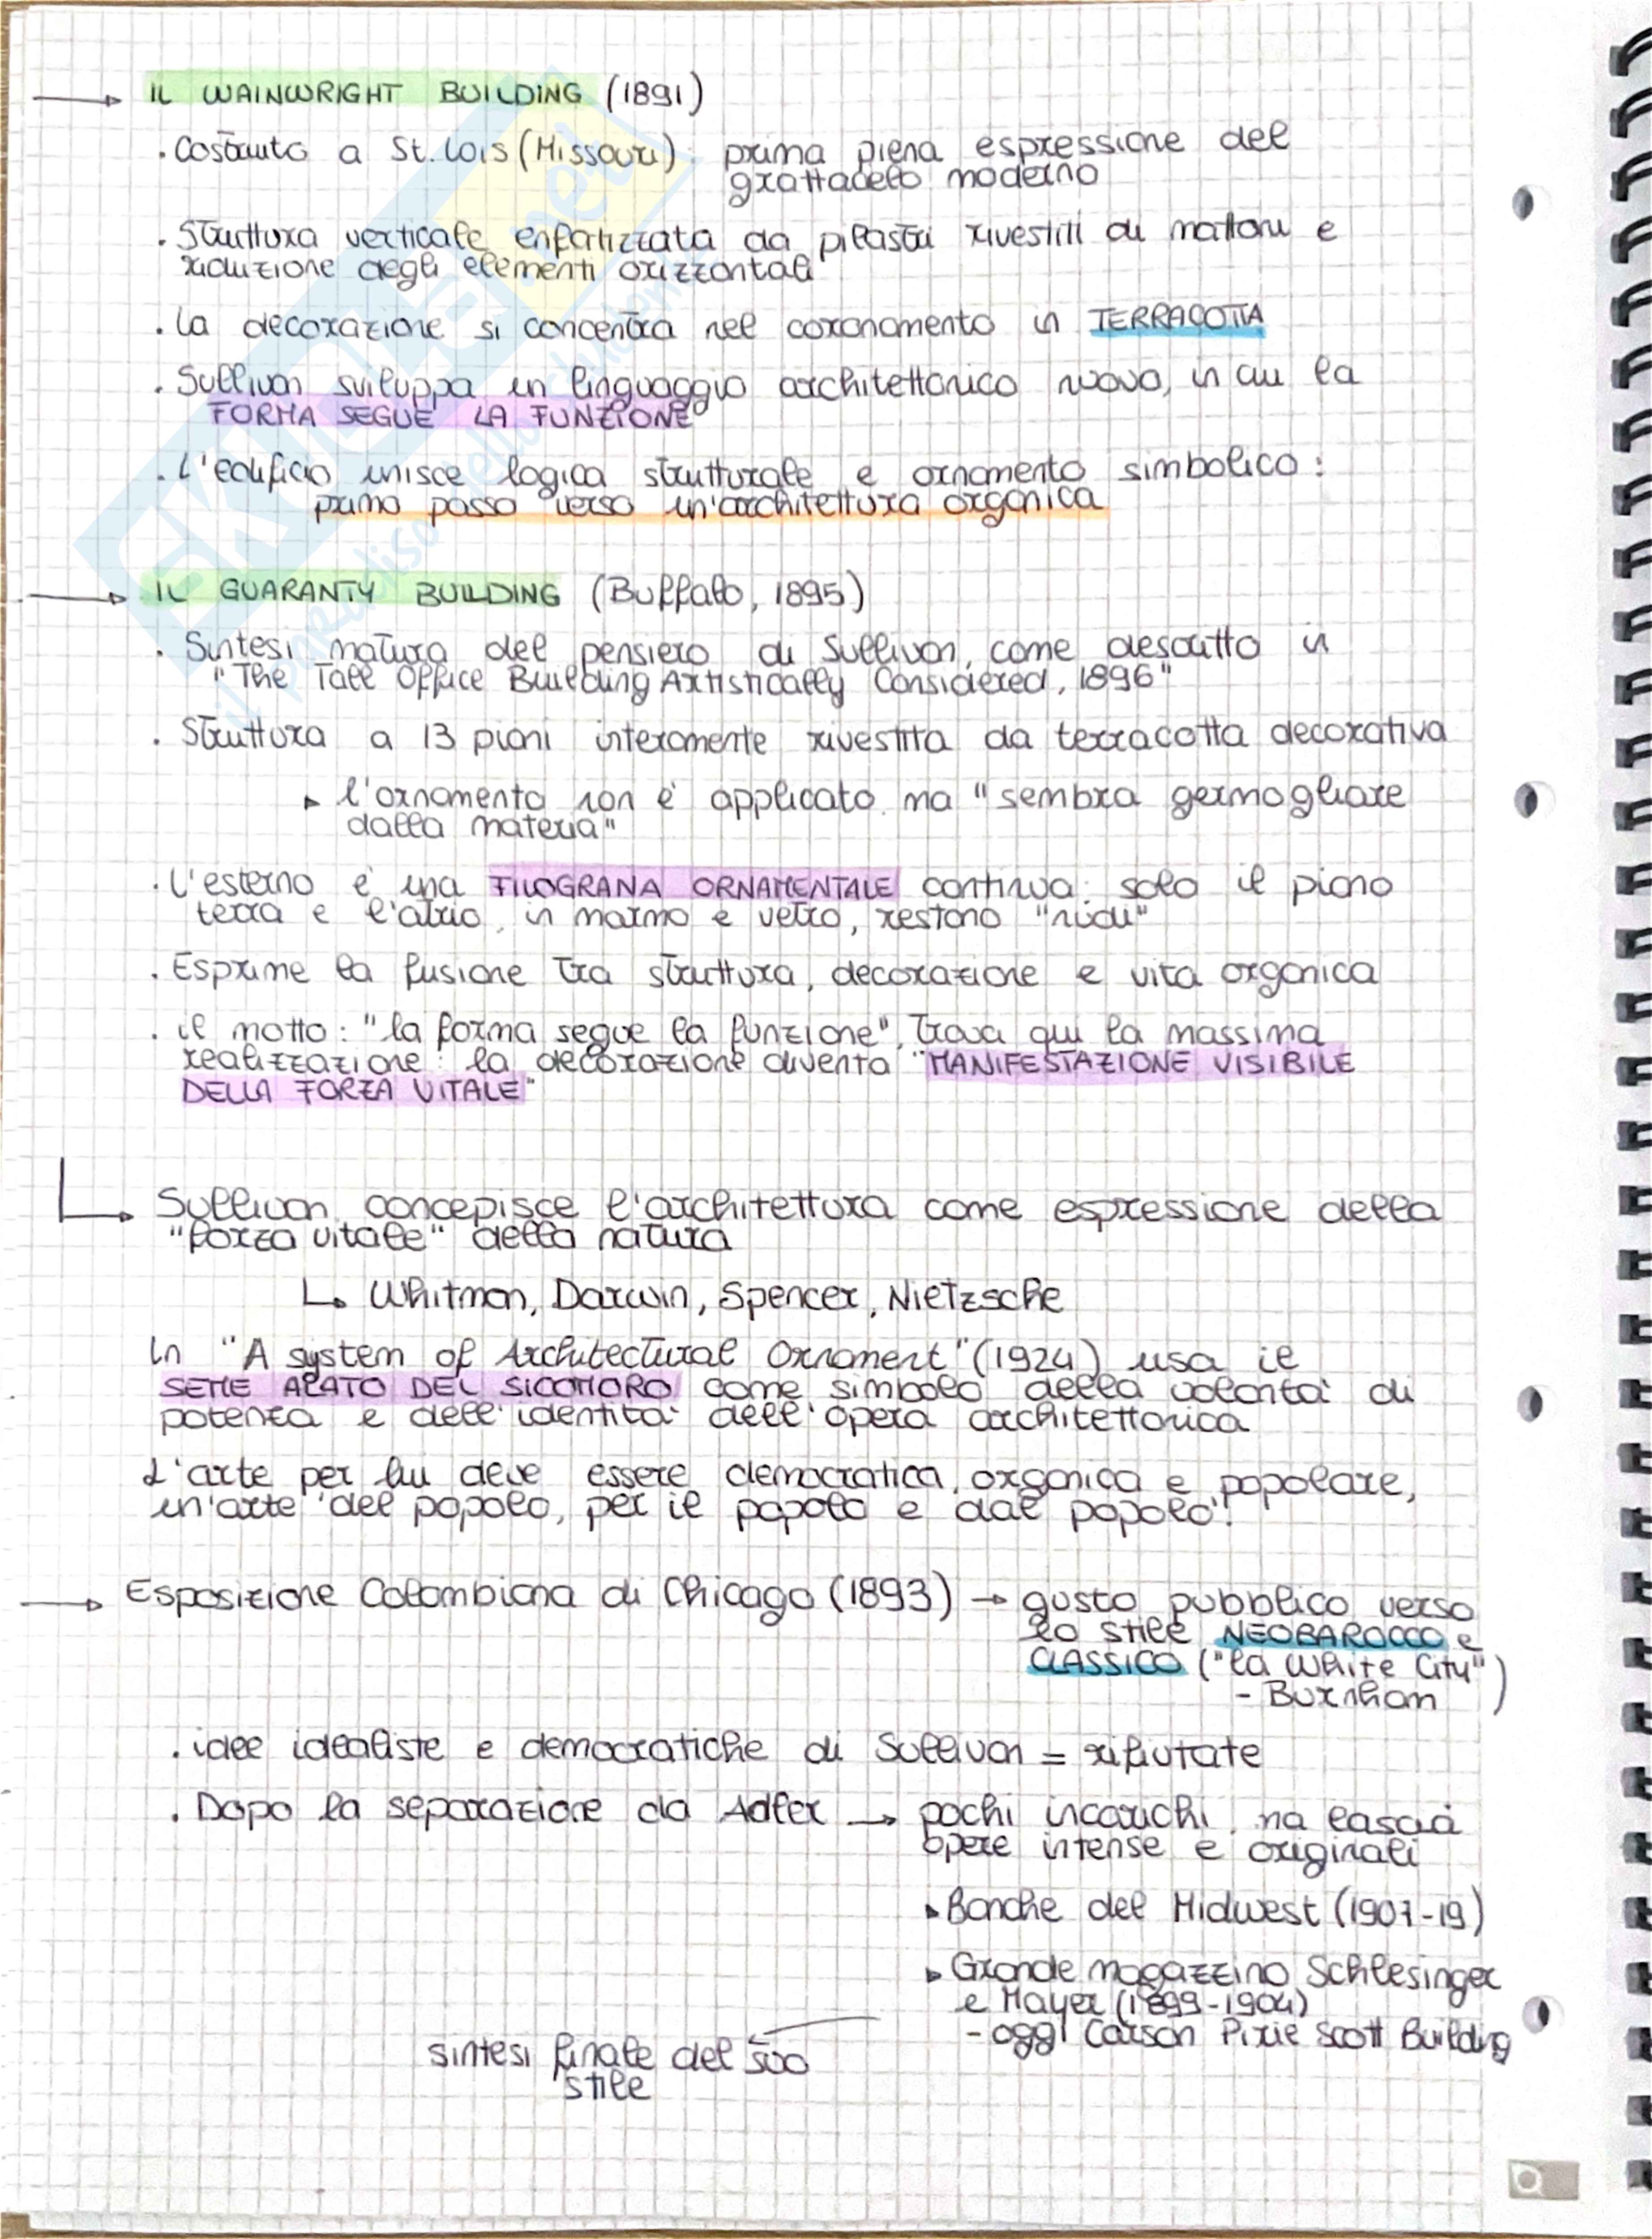 → IL WAINWRIGHT BUILDING (1891)
. Costruito a St. Lois (Missouri): prima piena espressione del
grattacielo moderno
. Struttura verticale enfatizzata da pilastri rivestiti di mattoni e
riduzione degli elementi orizzontali
. La decorazione si concentra nel coronamento in TERRACOTTA
. Sullivan sviluppa un linguaggio architettonico nuovo, in cui la
FORMA SEGUE LA FUNZIONE
. L'edificio unisce logica strutturale e ornamento simbolico:
primo passo verso un'architettura organica
→ IL GUARANTY BUILDING (Buffalo, 1895)
. Sintesi matura del pensiero di Sullivan, come descritto in
"The Tall Office Building Artistically Considered, 1896"
. Struttura a 13 piani interamente rivestita da terracotta decorativa
▸ l'ornamento non è applicato, ma "sembra germogliare
dalla materia"
. L'esterno è una FILOGRANA ORNAMENTALE continua: solo il piano
terra e l'atrio, in marmo e vetro, restano "nudi"
. Esprime la fusione tra struttura, decorazione e vita organica
. il motto: "la forma segue la funzione", trova qui la massima
realizzazione: la decorazione diventa "MANIFESTAZIONE VISIBILE
DELLA FORZA VITALE"
↳ Sullivan concepisce l'architettura come espressione della
"forza vitale" della natura
↳ Whitman, Darwin, Spencer, Nietzsche
In "A system of Architectural Ornament" (1924) usa il
SEME ALATO DEL SICOMORO come simbolo della volontà di
potenza e dell'identità dell'opera architettonica
L'arte per lui deve essere democratica, organica e popolare,
un'arte "del popolo, per il popolo e dal popolo".
→ Esposizione Colombiana di Chicago (1893) → gusto pubblico verso
lo stile NEOBAROCCO e
CLASSICO ("la White City"
- Burnham )
. idee idealiste e democratiche di Sullivan = rifiutate
. Dopo la separazione da Adler → pochi incarichi, ma lascia
opere intense e originali
▸ Banche del Midwest (1907-19)
▸ Grande magazzino Schlesinger
e Mayer (1899-1904)
- oggi Carson Pirie Scott Building
sintesi finale del suo
stile
SKUOLA.net
il paradiso dello studente